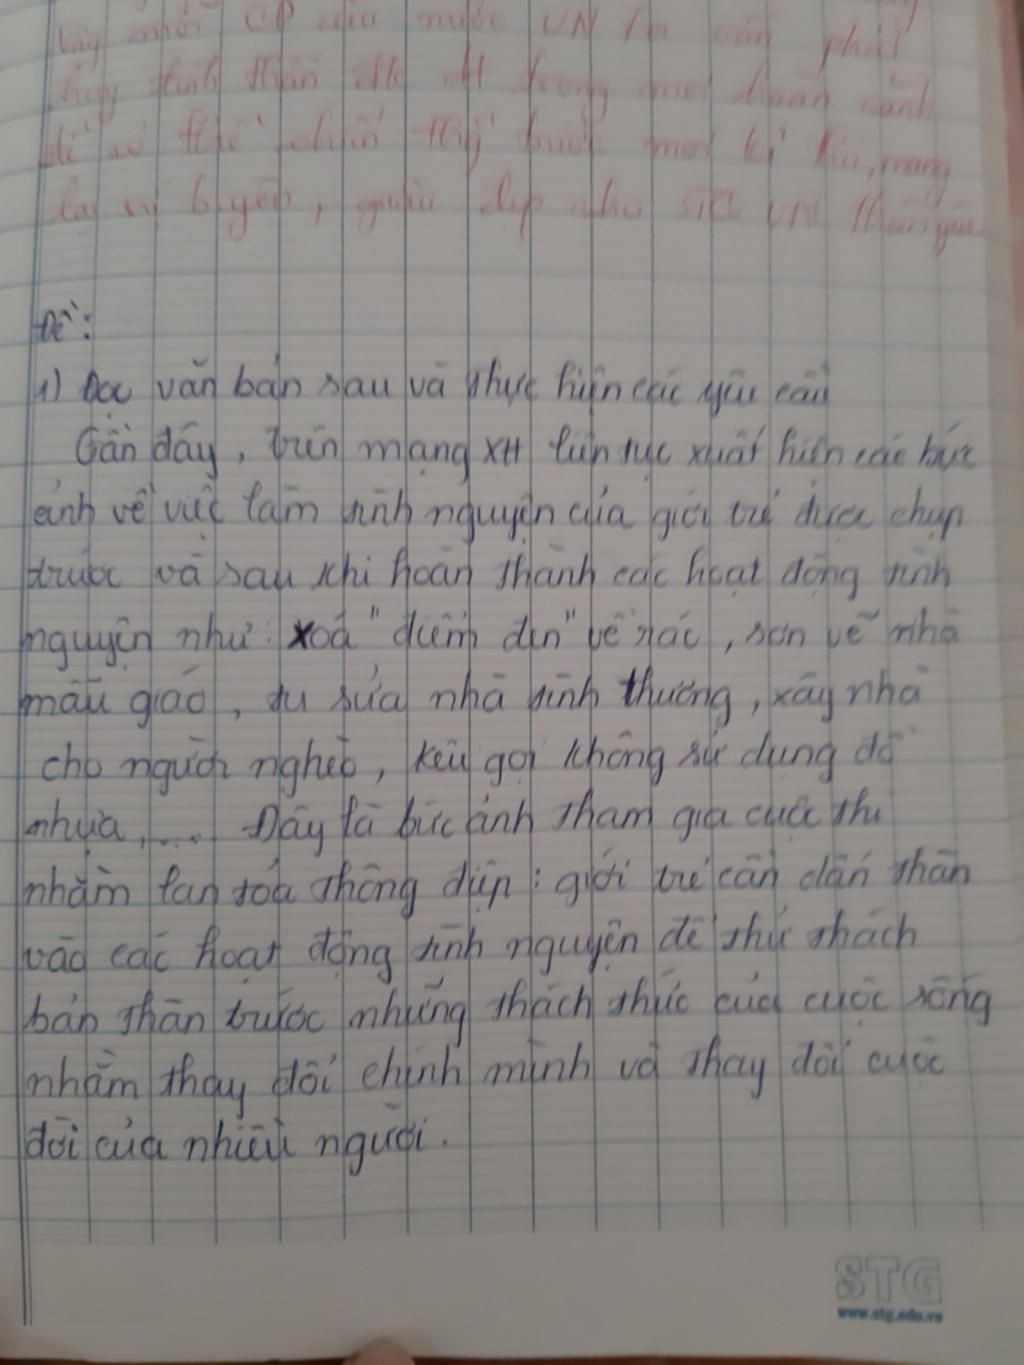 CP của nước VN ta cần phát
huy tinh thần trong mọi hoàn cảnh
để có thể chiến thắng mọi kẻ thù, mang
lại sự b.yên, giàu đẹp như VN
Đề:
1) Đọc văn bản sau và thực hiện các yêu cầu
Gần đây, trên mạng XH liên tục xuất hiện các bức
ảnh về việc làm tình nguyện của giới trẻ được chụp
trước và sau khi hoàn thành các hoạt động tình
nguyện như: xoá "điểm đen" về rác, sơn vẽ nhà
mẫu giáo, tu sửa nhà tình thương, xây nhà
cho người nghèo, kêu gọi không sử dụng đồ
nhựa,.... Đây là bức ảnh tham gia cuộc thi
nhằm lan toả thông điệp: giới trẻ cần dấn thân
vào các hoạt động tình nguyện để thử thách
bản thân trước những thách thức của cuộc sống
nhằm thay đổi chính mình và thay đổi cuộc
đời của nhiều người.
STG
www.stg.edu.vn